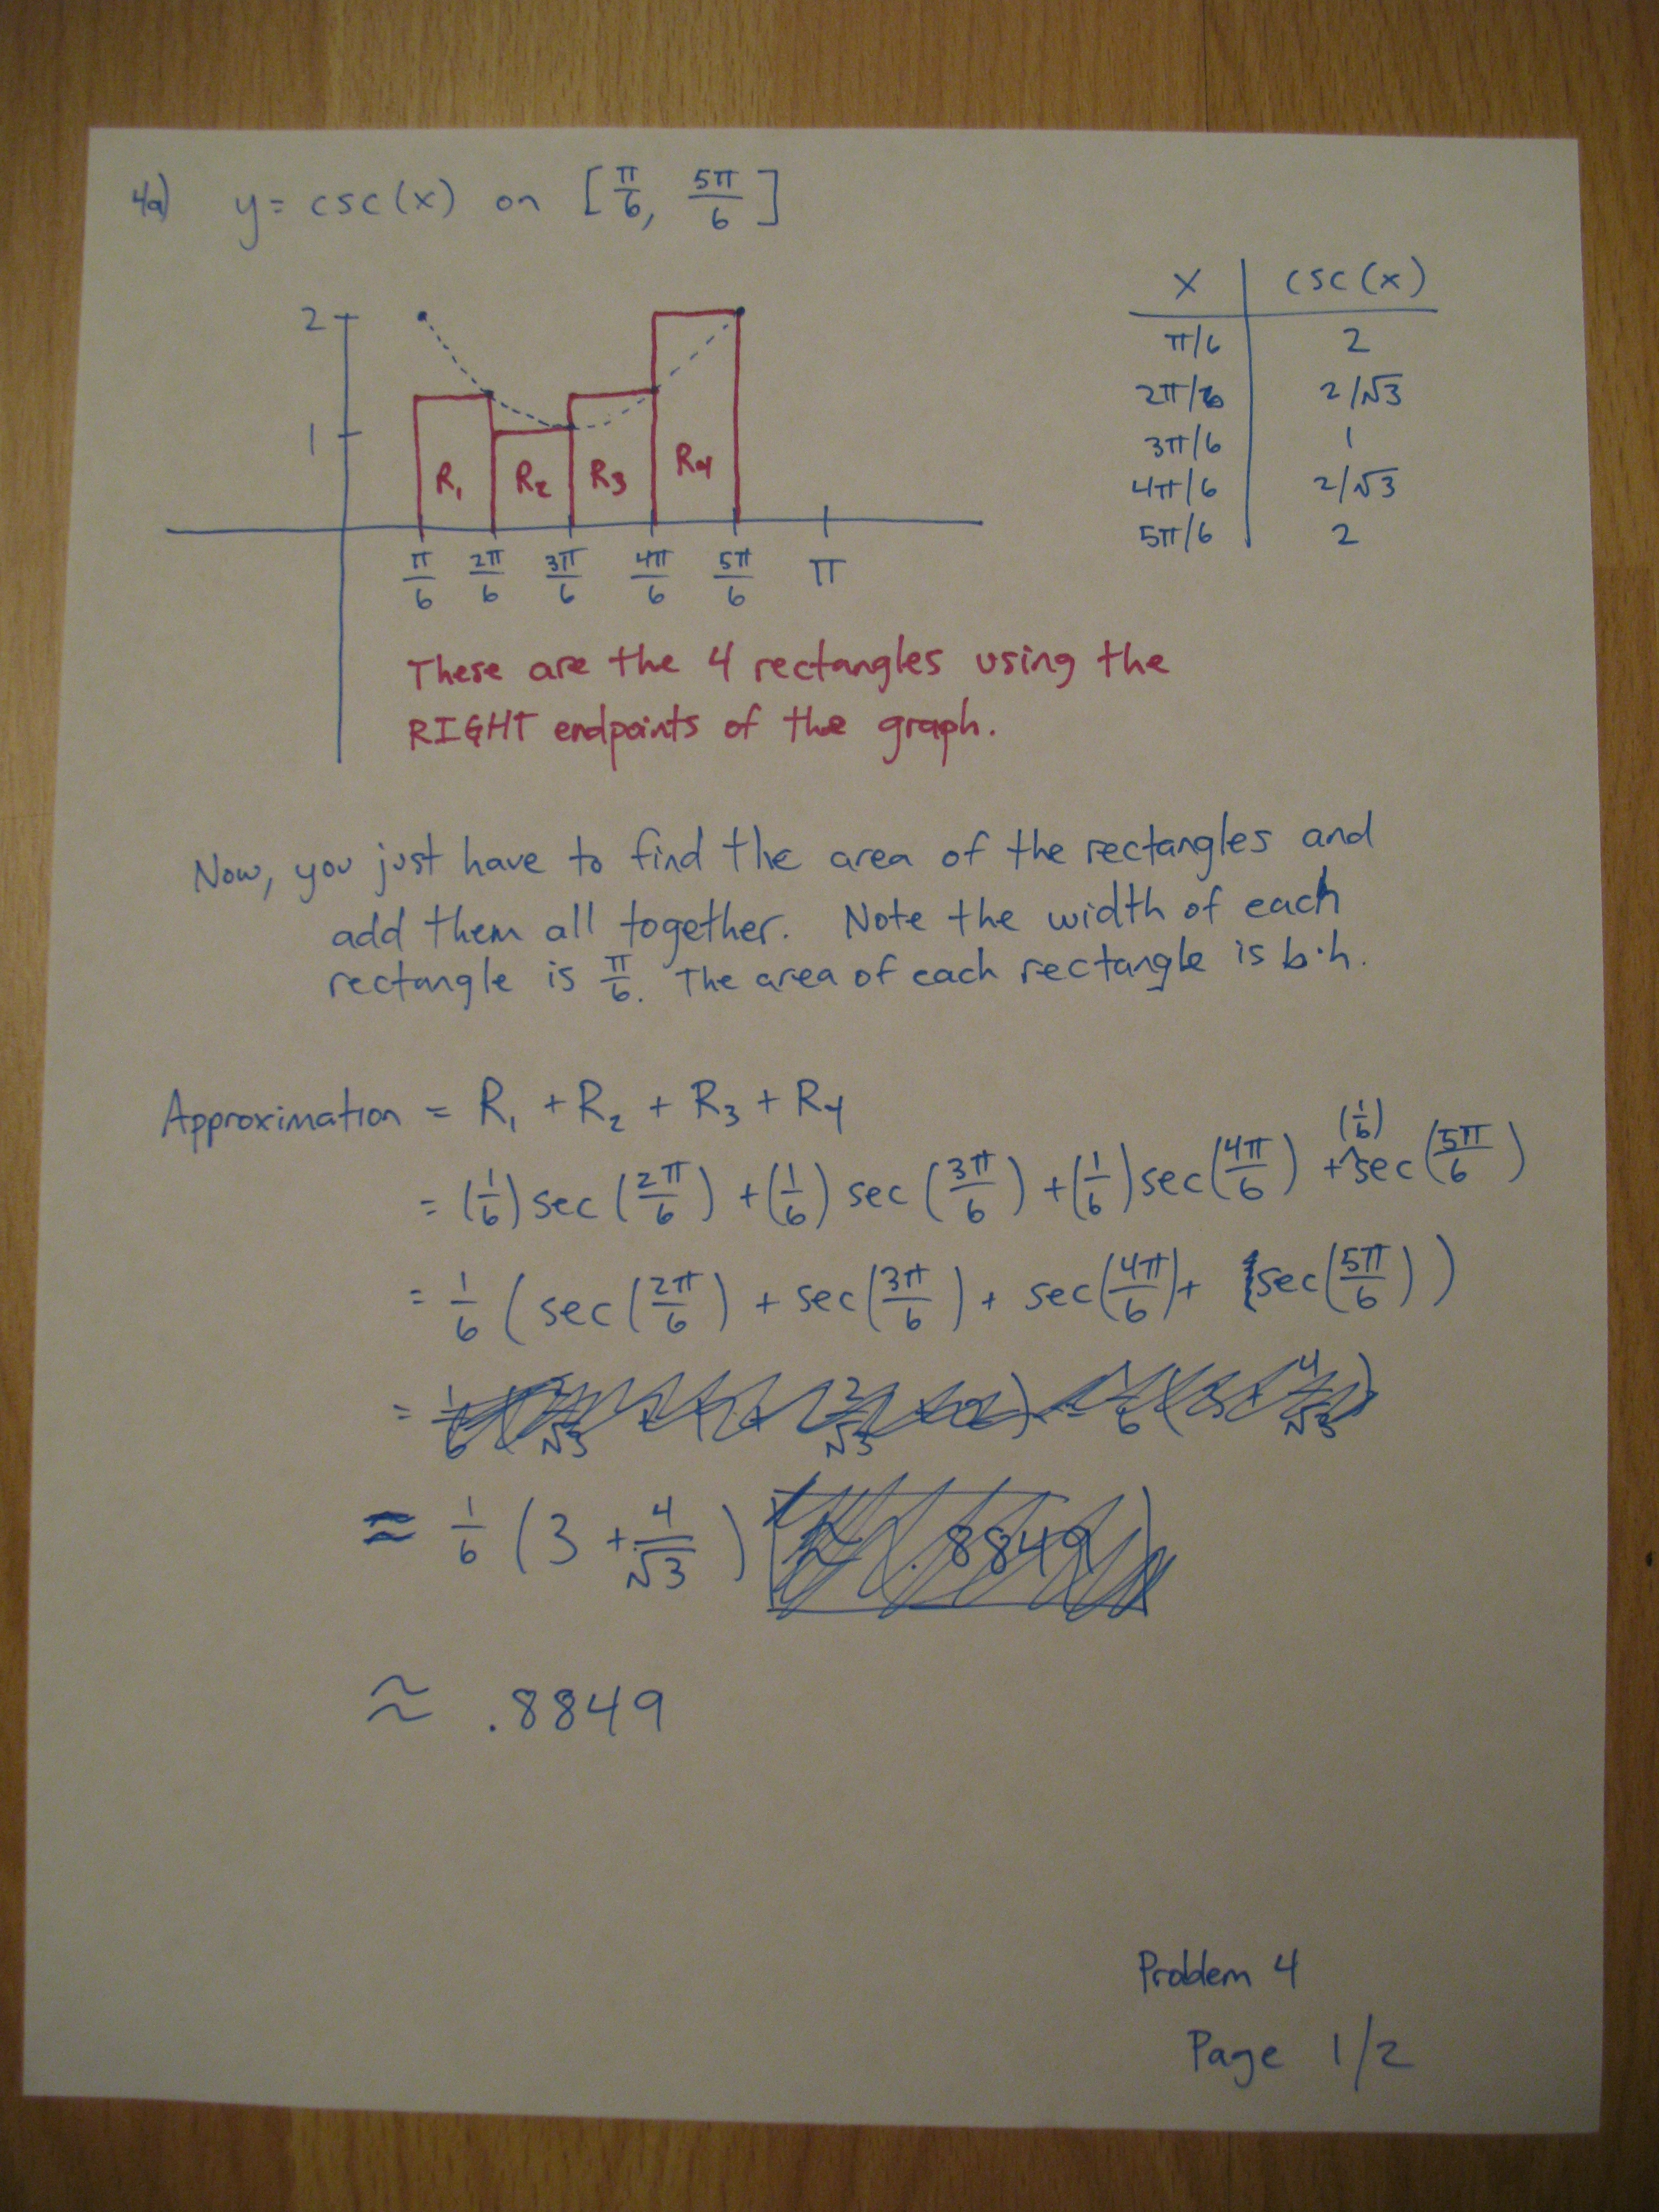 4a) y = csc(x) on [π/6, 5π/6]
x | csc(x)
π/6 | 2
2π/6 | 2/√3
3π/6 | 1
4π/6 | 2/√3
5π/6 | 2
2
1
R₁ R₂ R₃ R₄
π/6 2π/6 3π/6 4π/6 5π/6 π
These are the 4 rectangles using the
RIGHT endpoints of the graph.
Now, you just have to find the area of the rectangles and
add them all together. Note the width of each
rectangle is π/6. The area of each rectangle is b·h.
Approximation = R₁ + R₂ + R₃ + R₄
= (1/6) sec(2π/6) + (1/6) sec(3π/6) + (1/6) sec(4π/6) + (1/6) sec(5π/6)
= 1/6 (sec(2π/6) + sec(3π/6) + sec(4π/6) + sec(5π/6))
≈ 1/6 (3 + 4/√3) ≈ .8849
≈ .8849
Problem 4
Page 1/2